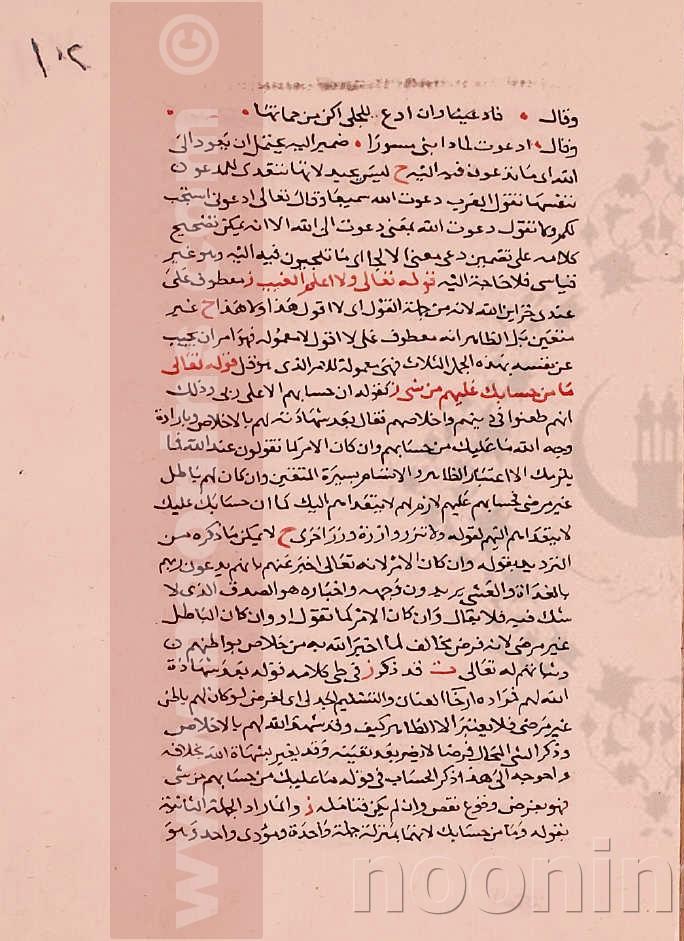 ١٠٢
وقال • فادعينا وان ادع للجلى اكن من حماتها •
وقال • ادعوت لما نابنى مسورا • ضمير اليه يحتمل ان يعود الى
الله اى ما تدعون فيه اليه ح ليس بجيد لانها تتعدى للمدعو
بنفسها تقول العرب دعوت الله سميعا وقال تعالى ادعونى استجب
لكم ولا تقول دعوت الله بمعنى دعوت الى الله الا انه يمكن تصحيح
كلامه على تضمين دعى معنى لجا اى ما تلجيون فيه اليه وهو غير
قياس فلا حاجة اليه قوله تعالى ولا اعلم الغيب ز معطوف على
عندى خزاين الله لانه من جملة القول اى لا اقول هذا ولا هذا ح غير
متعين بل الظاهر انه معطوف على لا اقول لا معمول له فهو امر ان يجيب
عن نفسه بهذه الجمل الثلاث فهى معمولة للامر الذى هو قل قوله تعالى
ما من حسابك عليهم من شى ز كقوله ان حسابهم الا على ربى وذلك
انهم طعنوا فى دينهم واخلاصهم فقال بعد شهادته لهم بالاخلاص وبارادة
وجه الله ما عليك من حسابهم وان كان الامر كما تقولون عند الله فما
يلزمك الا اعتبار الظاهر والاتسام بسيرة المتقين وان كان لهم باطل
غير مرضى فحسابهم عليهم لازم لهم لا يتعداهم اليك كما ان حسابك عليك
لا يتعداهم اليهم لقوله ولا تزر وازرة وزر اخرى ح لا يمكن ما ذكره من
الترديد بقوله وان كان الامر لانه تعالى اخبر عنهم بانهم يدعون ربهم
بالغداة والعشى يريدون وجهه واخباره هو الصدق الذى لا
شك فيه فلا يقال وان كان الامر كما تقول او وان كان الباطل
غير مرضى لانه فرض مخالف لما اخبر الله به من خلاص بواطنهم
ونياتهم له تعالى ت قد ذكر ز فى طى كلامه قوله بعد شهادة
الله لهم فمراده ارخا العنان والتسليم الجدلى اى لو فرض لو كان لهم باطن
غير مرضى فلا يعتبر الا الظاهر كيف وقد شهد الله لهم بالاخلاص
وذكر الشى المحال فرضا لا يضر بعد نفيه وقد يغير بشهادة الله بخلافه
واحوجه الى هذا ذكر الحساب فى قوله ما عليك من حسابهم من شى
فهو بعرض وقوع نقص وان لم يكن فتامله ز وانما اراد الجملة الثانية
بقوله وما من حسابك لانهما بمنزلة جملة واحدة ومودى واحد وهو
noonin